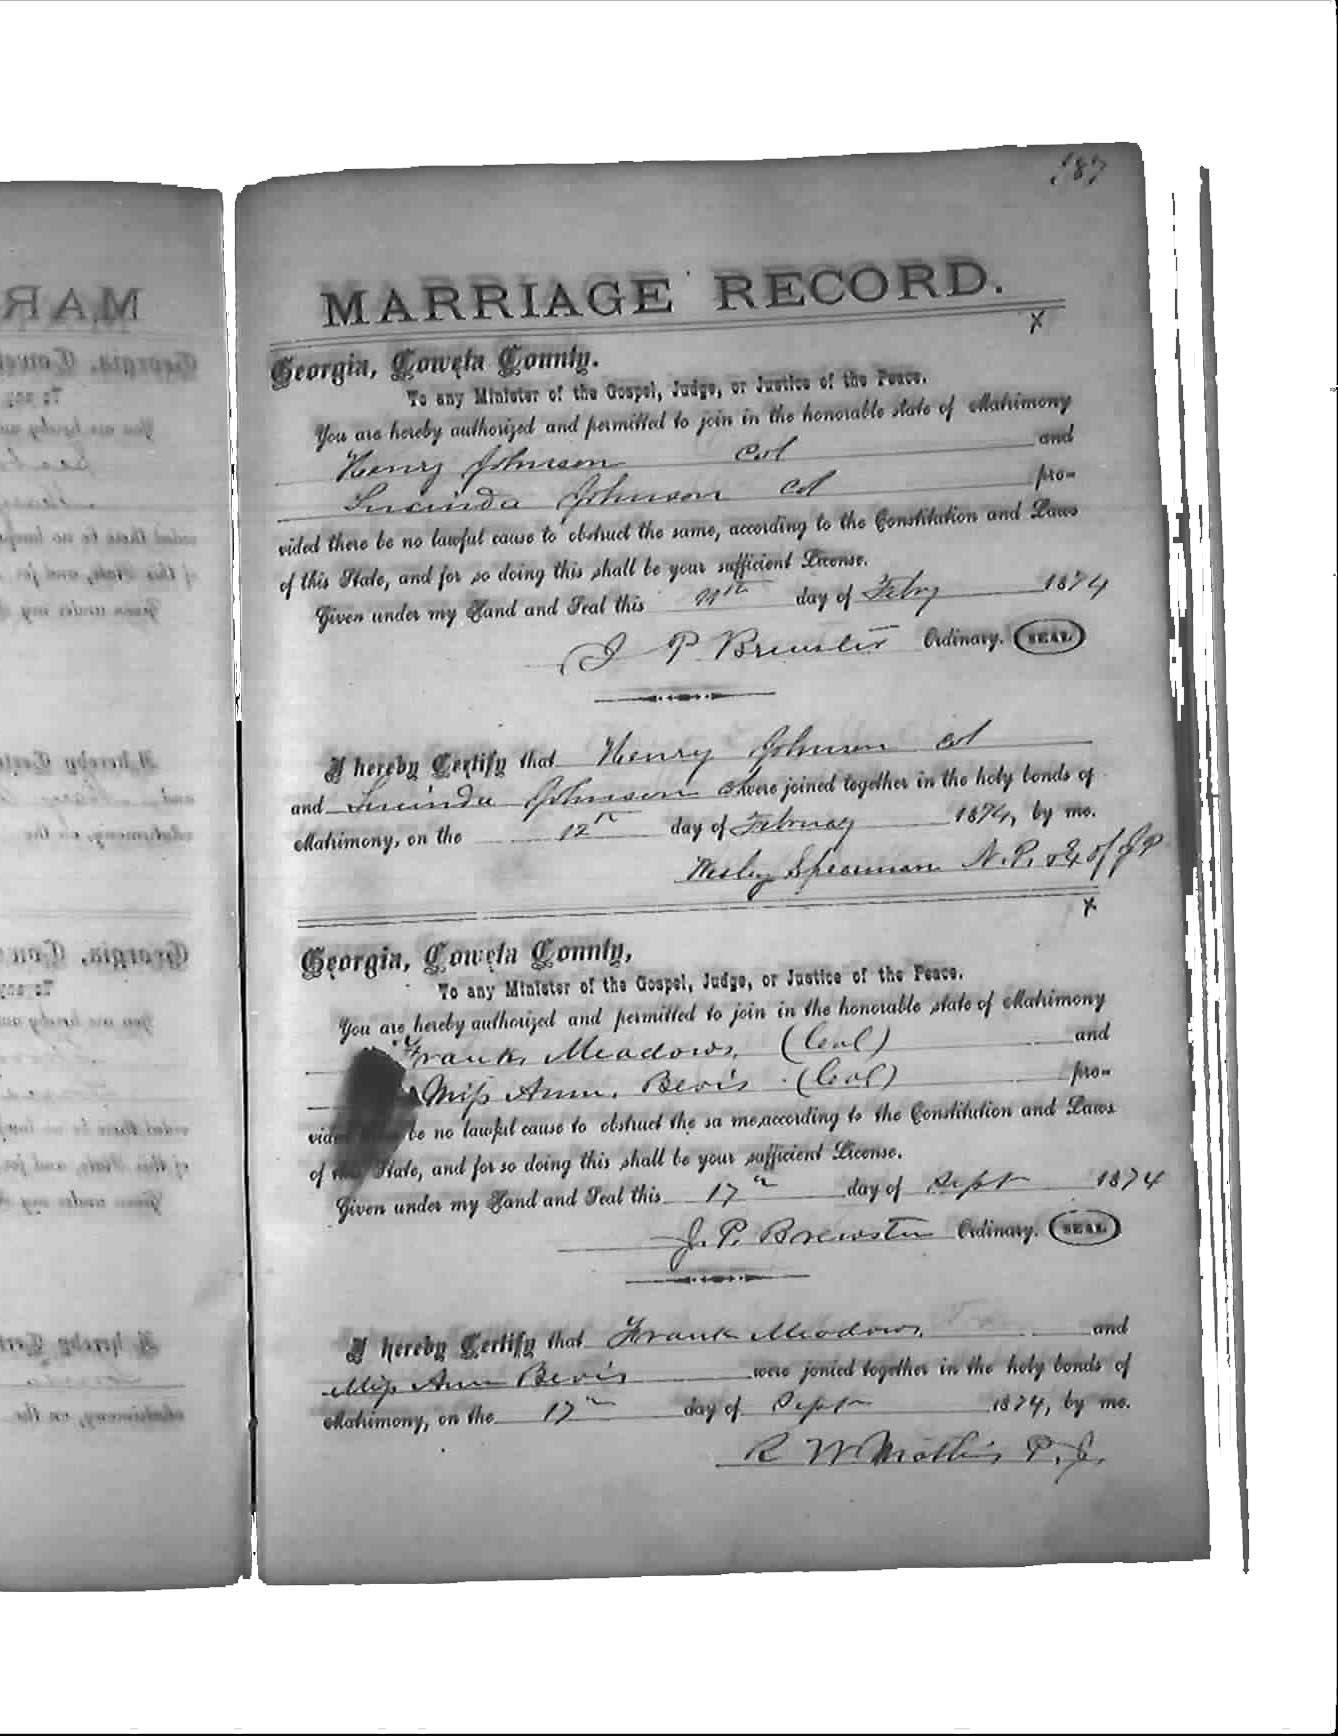 187
MARRIAGE RECORD.
x
Georgia, Coweta County.
To any Minister of the Gospel, Judge, or Justice of the Peace.
You are hereby authorized and permitted to join in the honorable state of Matrimony
Henry Johnson col and
Lucinda Johnson col pro-
vided there be no lawful cause to obstruct the same, according to the Constitution and Laws
of this State, and for so doing this shall be your sufficient License.
Given under my Hand and Seal this day of Feby 1874
J P Brewster Ordinary. SEAL.
I hereby Certify that Henry Johnson col
and Lucinda Johnson col were joined together in the holy bonds of
Matrimony, on the 12th day of February 1874, by me.
Wesley Spearman N.P. & Ex of JP
x
Georgia, Coweta County,
To any Minister of the Gospel, Judge, or Justice of the Peace.
You are hereby authorized and permitted to join in the honorable state of Matrimony
Frank Meadows, (Col) and
Miss Ann Bevis (Col) pro-
vided there be no lawful cause to obstruct the sa me, according to the Constitution and Laws
of this State, and for so doing this shall be your sufficient License.
Given under my Hand and Seal this 17th day of Sept 1874
J. P. Brewster Ordinary. SEAL
I hereby Certify that Frank Meadows, and
Miss Ann Bevis were jonied together in the holy bonds of
Matrimony, on the 17th day of Sept 1874, by me.
R W Mathis P. J.